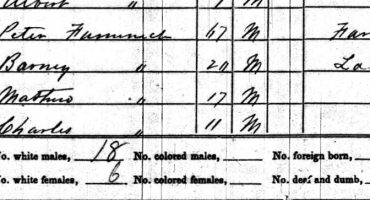 Albert " 1 M
Peter Famimich 67 M Far
Barney " 20 M La
Mathew " 17 M
Charles " 11 M
No. white males, 18 No. colored males, No. foreign born,
No. white females, 6 No. colored females, No. deaf and dumb,